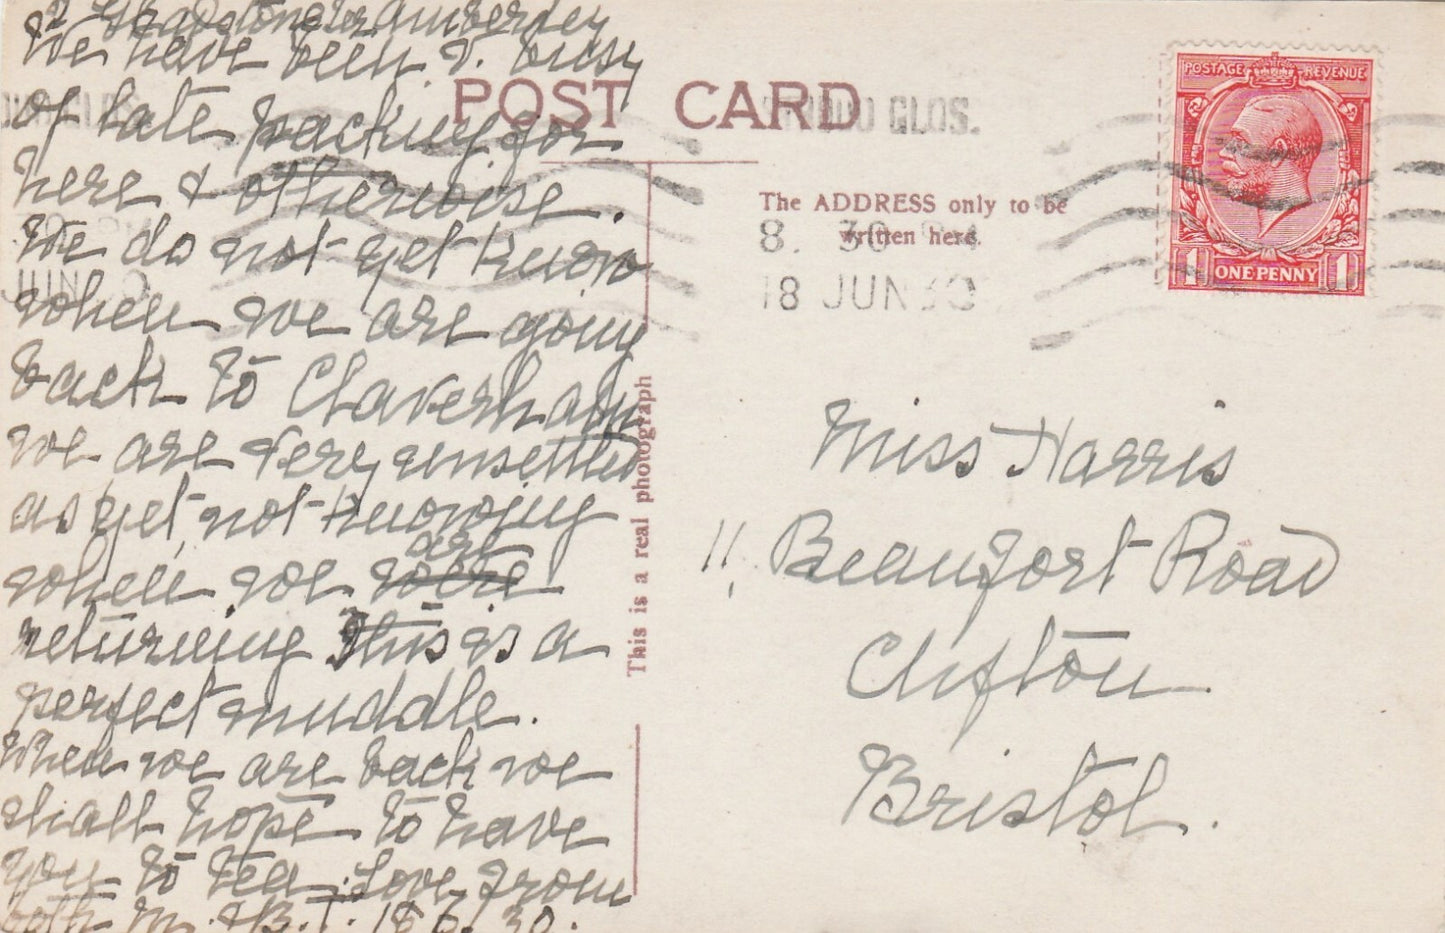 2 Gladstone Ter. Amberley
We have been v. busy
of late packing for
here & otherwise.
We do not yet know
when we are going
back to Claverham
we are very unsettled
as yet, not knowing
when we are were
returning This is a
perfect muddle.
When we are back we
shall hope to have
you to tea. Love from
both M. & B. T. 18 6. 30.
POST CARD
The ADDRESS only to be
written here.
This is a real photograph
GLOS.
8. 30
18 JUN 30
POSTAGE REVENUE
1 ONE PENNY 1
Miss Harris
11, Beaufort Road
Clifton
Bristol.